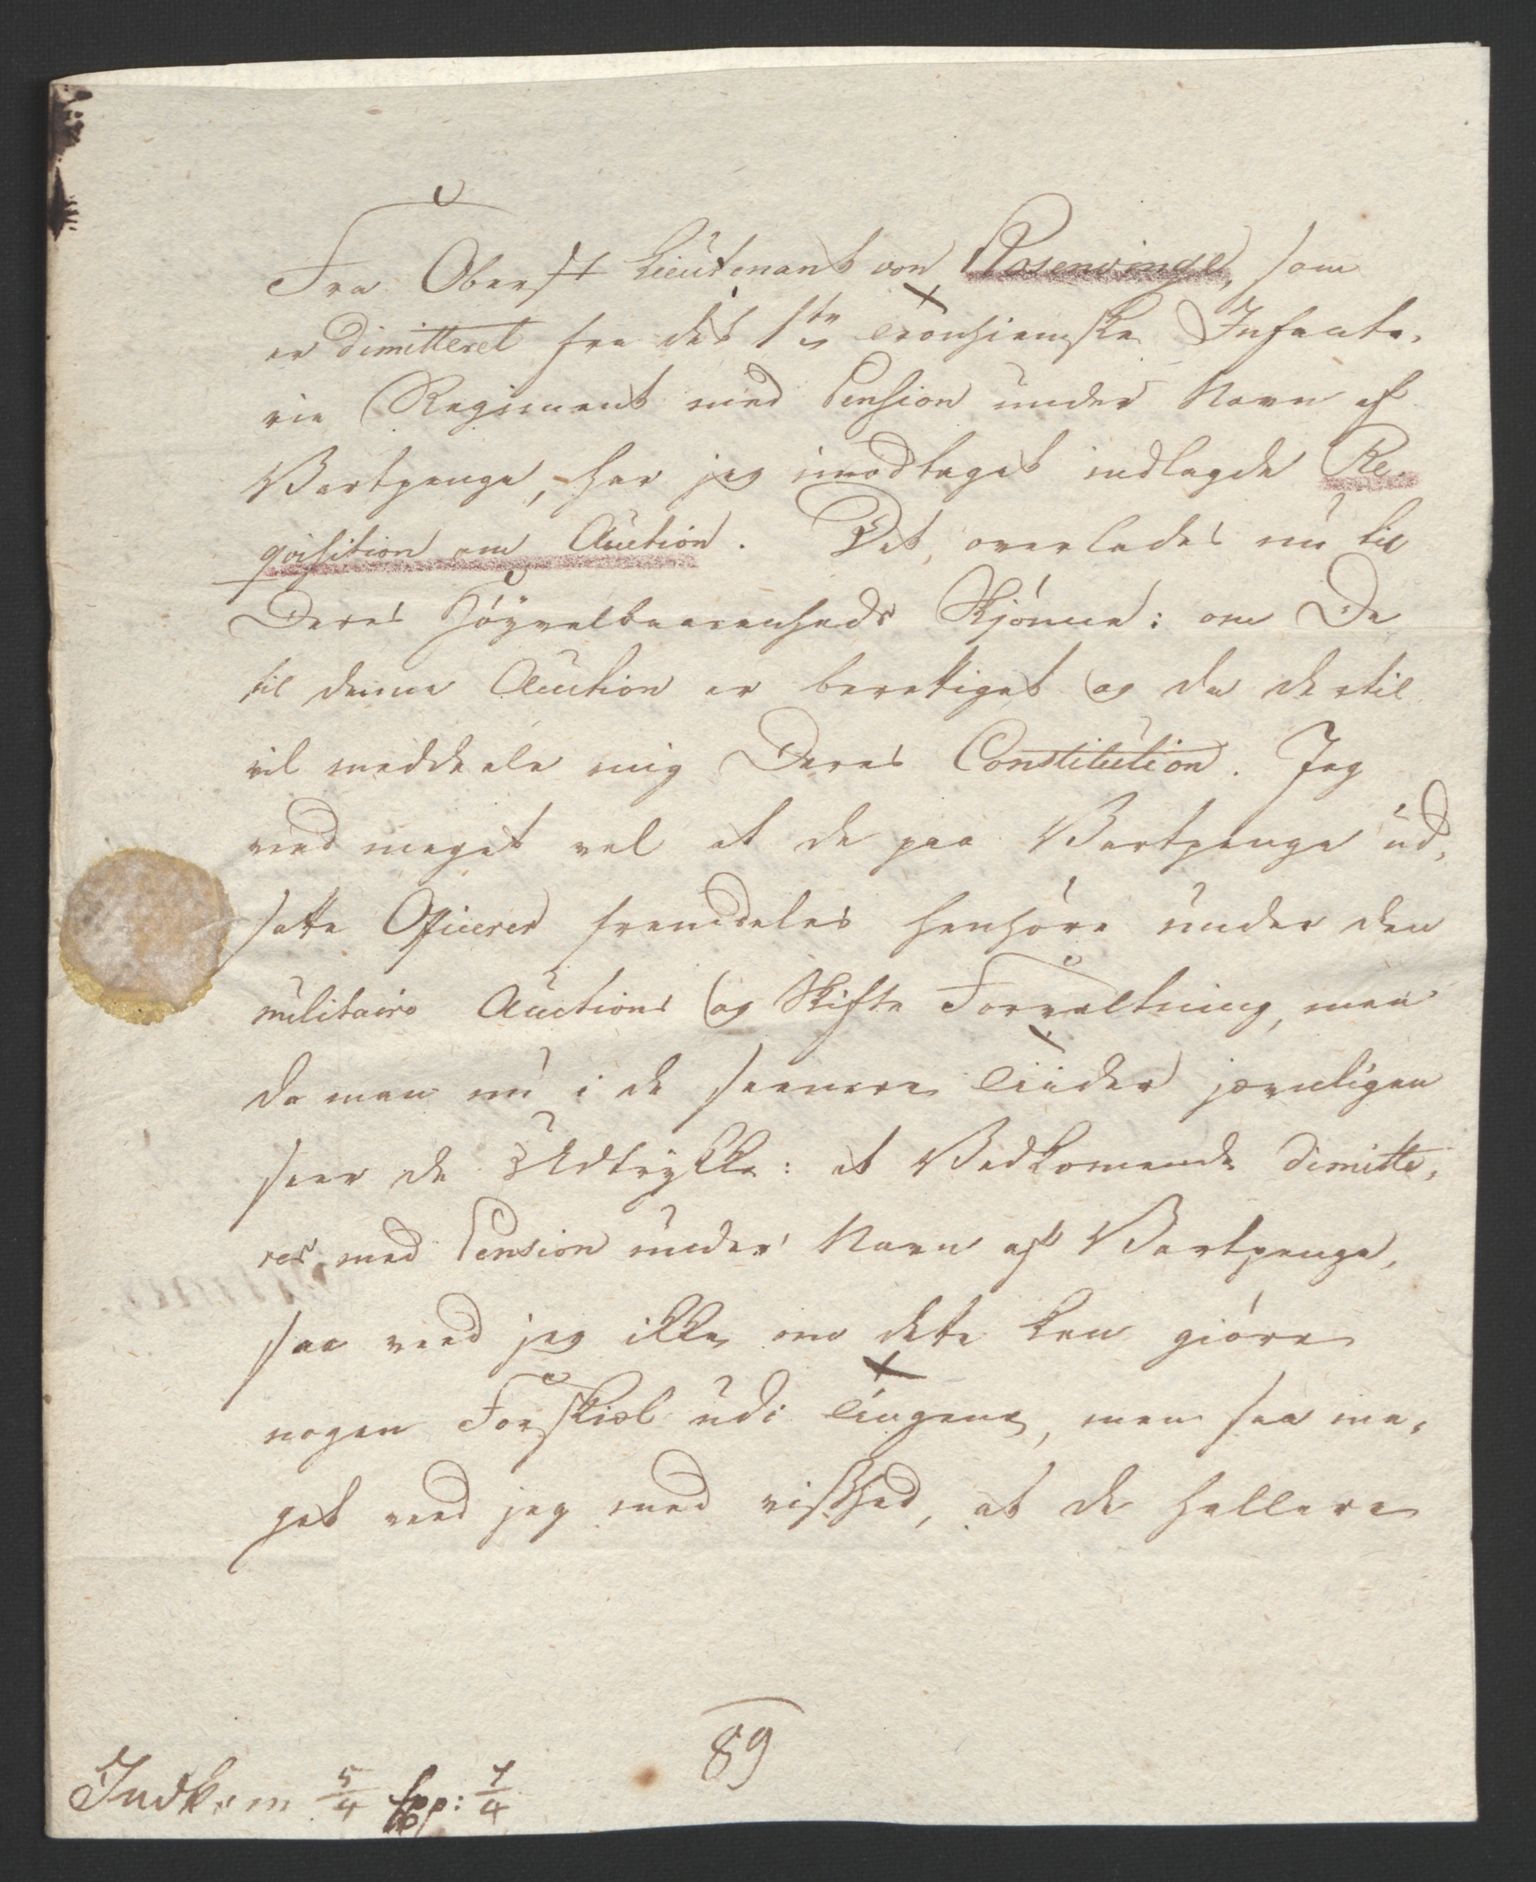 Fra Oberst Lieutenant von Rosenvinge, som
er dimitteret fra det 1ste Tronhiemske Infante,
rie Regiment med Pension under Navn af
Vartpenge, har jeg imodtaget indlagde Re,
qvisition om Auction. Det overlades nu til
Deres Høyvelbaarenheds Skjønne: om De
til denne Auction er berettiget og da dertil
vil meddeele mig Deres Constitution. Jeg
veed meget vel at de paa Vartpenge ud,
satte Officerer fremdeles henhøre under den
militaire Auctions og Skifte Forvaltning, men
da man nu i de seenere Tiider jevnligen
seer de Udtrykke: at Vedkomende dimitte,
res med Pension under Navn af Vartpenge,
saa veed jeg ikke om dette kan giøre
nogen Forskiel udi Tingene, men saa me,
get veed jeg med vished, at de hellere
89
Indkom 5/4 Exp: 7/4